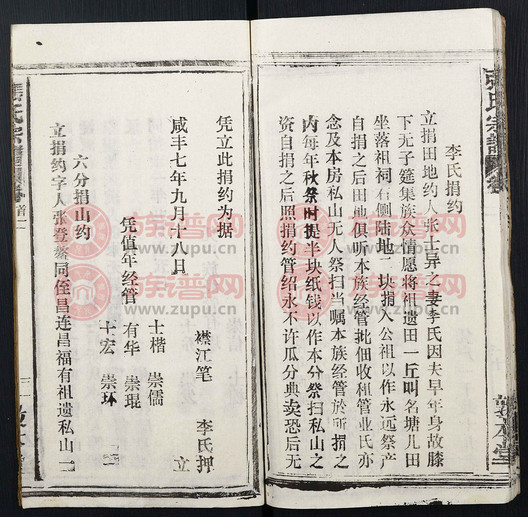 李氏捐约
立捐田地约人张士异之妻李氏因夫早年身故膝
下无子筵集族众情愿将祖遗田一丘叫名塘儿田
坐落祖祠右侧陆地二块捐入公祖以作永远祭产
自捐之后田地俱听本族经管批佃收租管业氏亦
念及本房私山无人祭扫当嘱本族经管於所捐之
内每年秋祭时提半块纸钱以作本分祭扫私山之
资自捐之后照捐约管绍永不许瓜分典卖恐后无
敦本堂
凭立此捐约为据
襟江笔 李氏押 立
咸丰七年九月十八日
士楷 崇儒
凭值年经管 有华 崇琨
士宏 崇环
六分捐山约
立捐山约字人张登鳌同侄昌连昌福有祖遗私山一
张氏宗谱
族谱网
www.zupu.cn
族谱网
www.zupu.cn
族谱网
www.zupu.cn
族谱网
www.zupu.cn